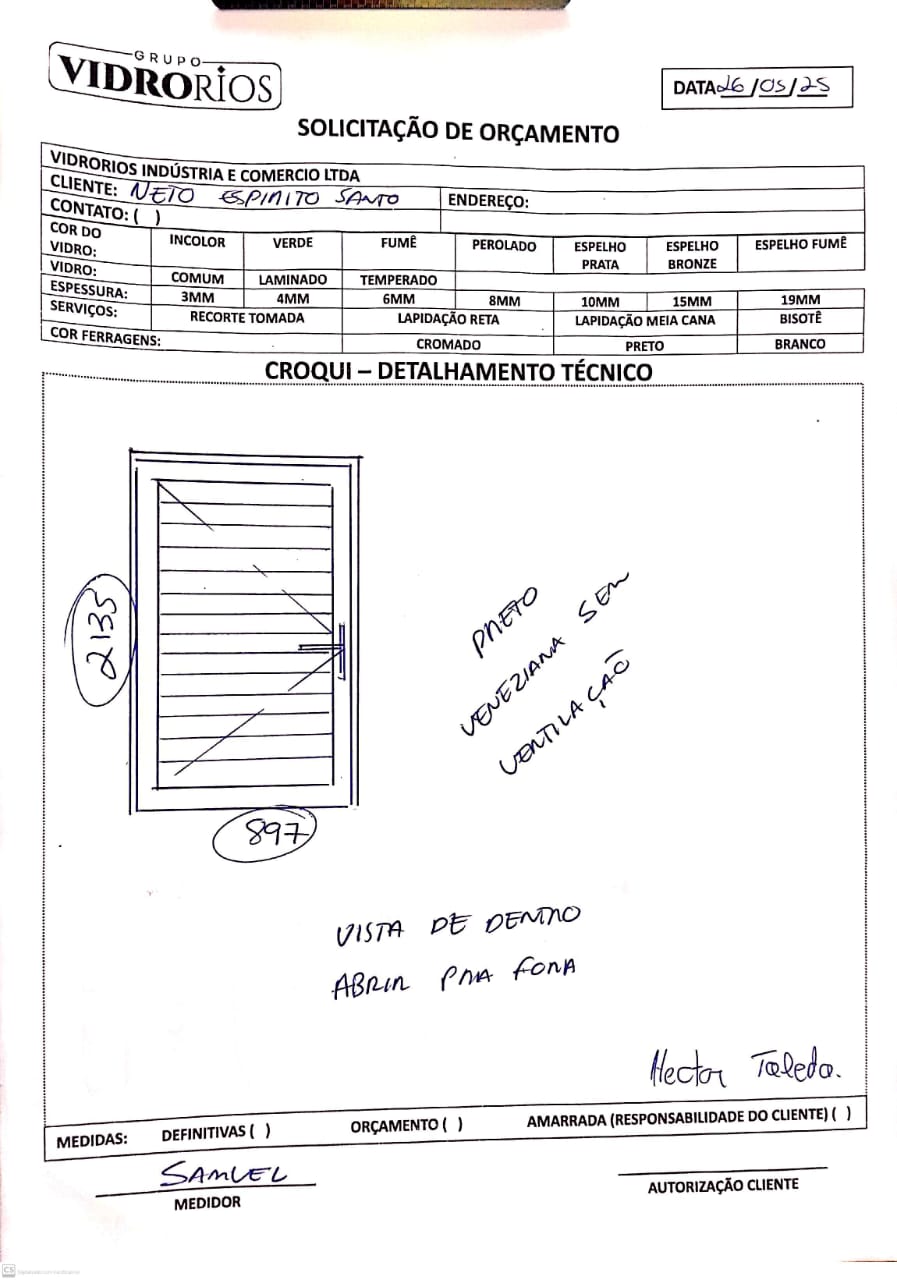 GRUPO
VIDRORIOS
DATA 26/05/25
SOLICITAÇÃO DE ORÇAMENTO
VIDRORIOS INDÚSTRIA E COMERCIO LTDA
CLIENTE: NETO ESPIRITO SANTO ENDEREÇO:
CONTATO: ( )
COR DO VIDRO: INCOLOR VERDE FUMÊ PEROLADO ESPELHO PRATA ESPELHO BRONZE ESPELHO FUMÊ
VIDRO: COMUM LAMINADO TEMPERADO
ESPESSURA: 3MM 4MM 6MM 8MM 10MM 15MM 19MM
SERVIÇOS: RECORTE TOMADA LAPIDAÇÃO RETA LAPIDAÇÃO MEIA CANA BISOTÊ
COR FERRAGENS: CROMADO PRETO BRANCO
CROQUI – DETALHAMENTO TÉCNICO
2135
897
PRETO
VENEZIANA SEM
VENTILAÇÃO
VISTA DE DENTRO
ABRIR PRA FORA
Hector Toledo.
MEDIDAS: DEFINITIVAS ( ) ORÇAMENTO ( ) AMARRADA (RESPONSABILIDADE DO CLIENTE) ( )
SAMUEL
MEDIDOR
AUTORIZAÇÃO CLIENTE
CS